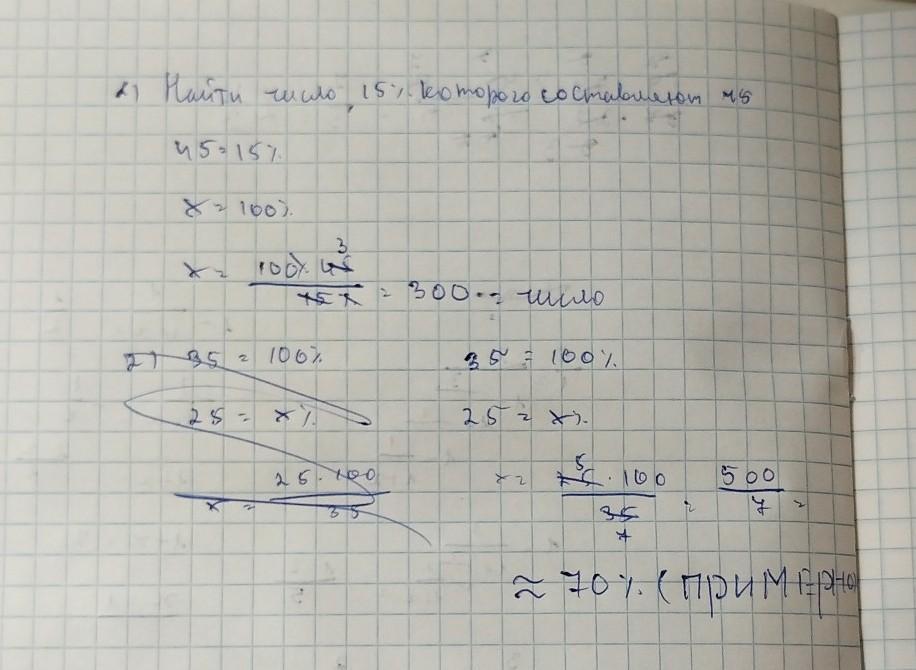 1) Найти число, 15% которого составляют 45
45 = 15%
x = 100%
x = 100% · 45 3 / 15% = 300 = число
2) 35 = 100%
25 = x%
x = 25 · 100 / 35
35 = 100%
25 = x%
x = 25 5 · 100 / 35 7 = 500 / 7 =
≈ 70% (примерно